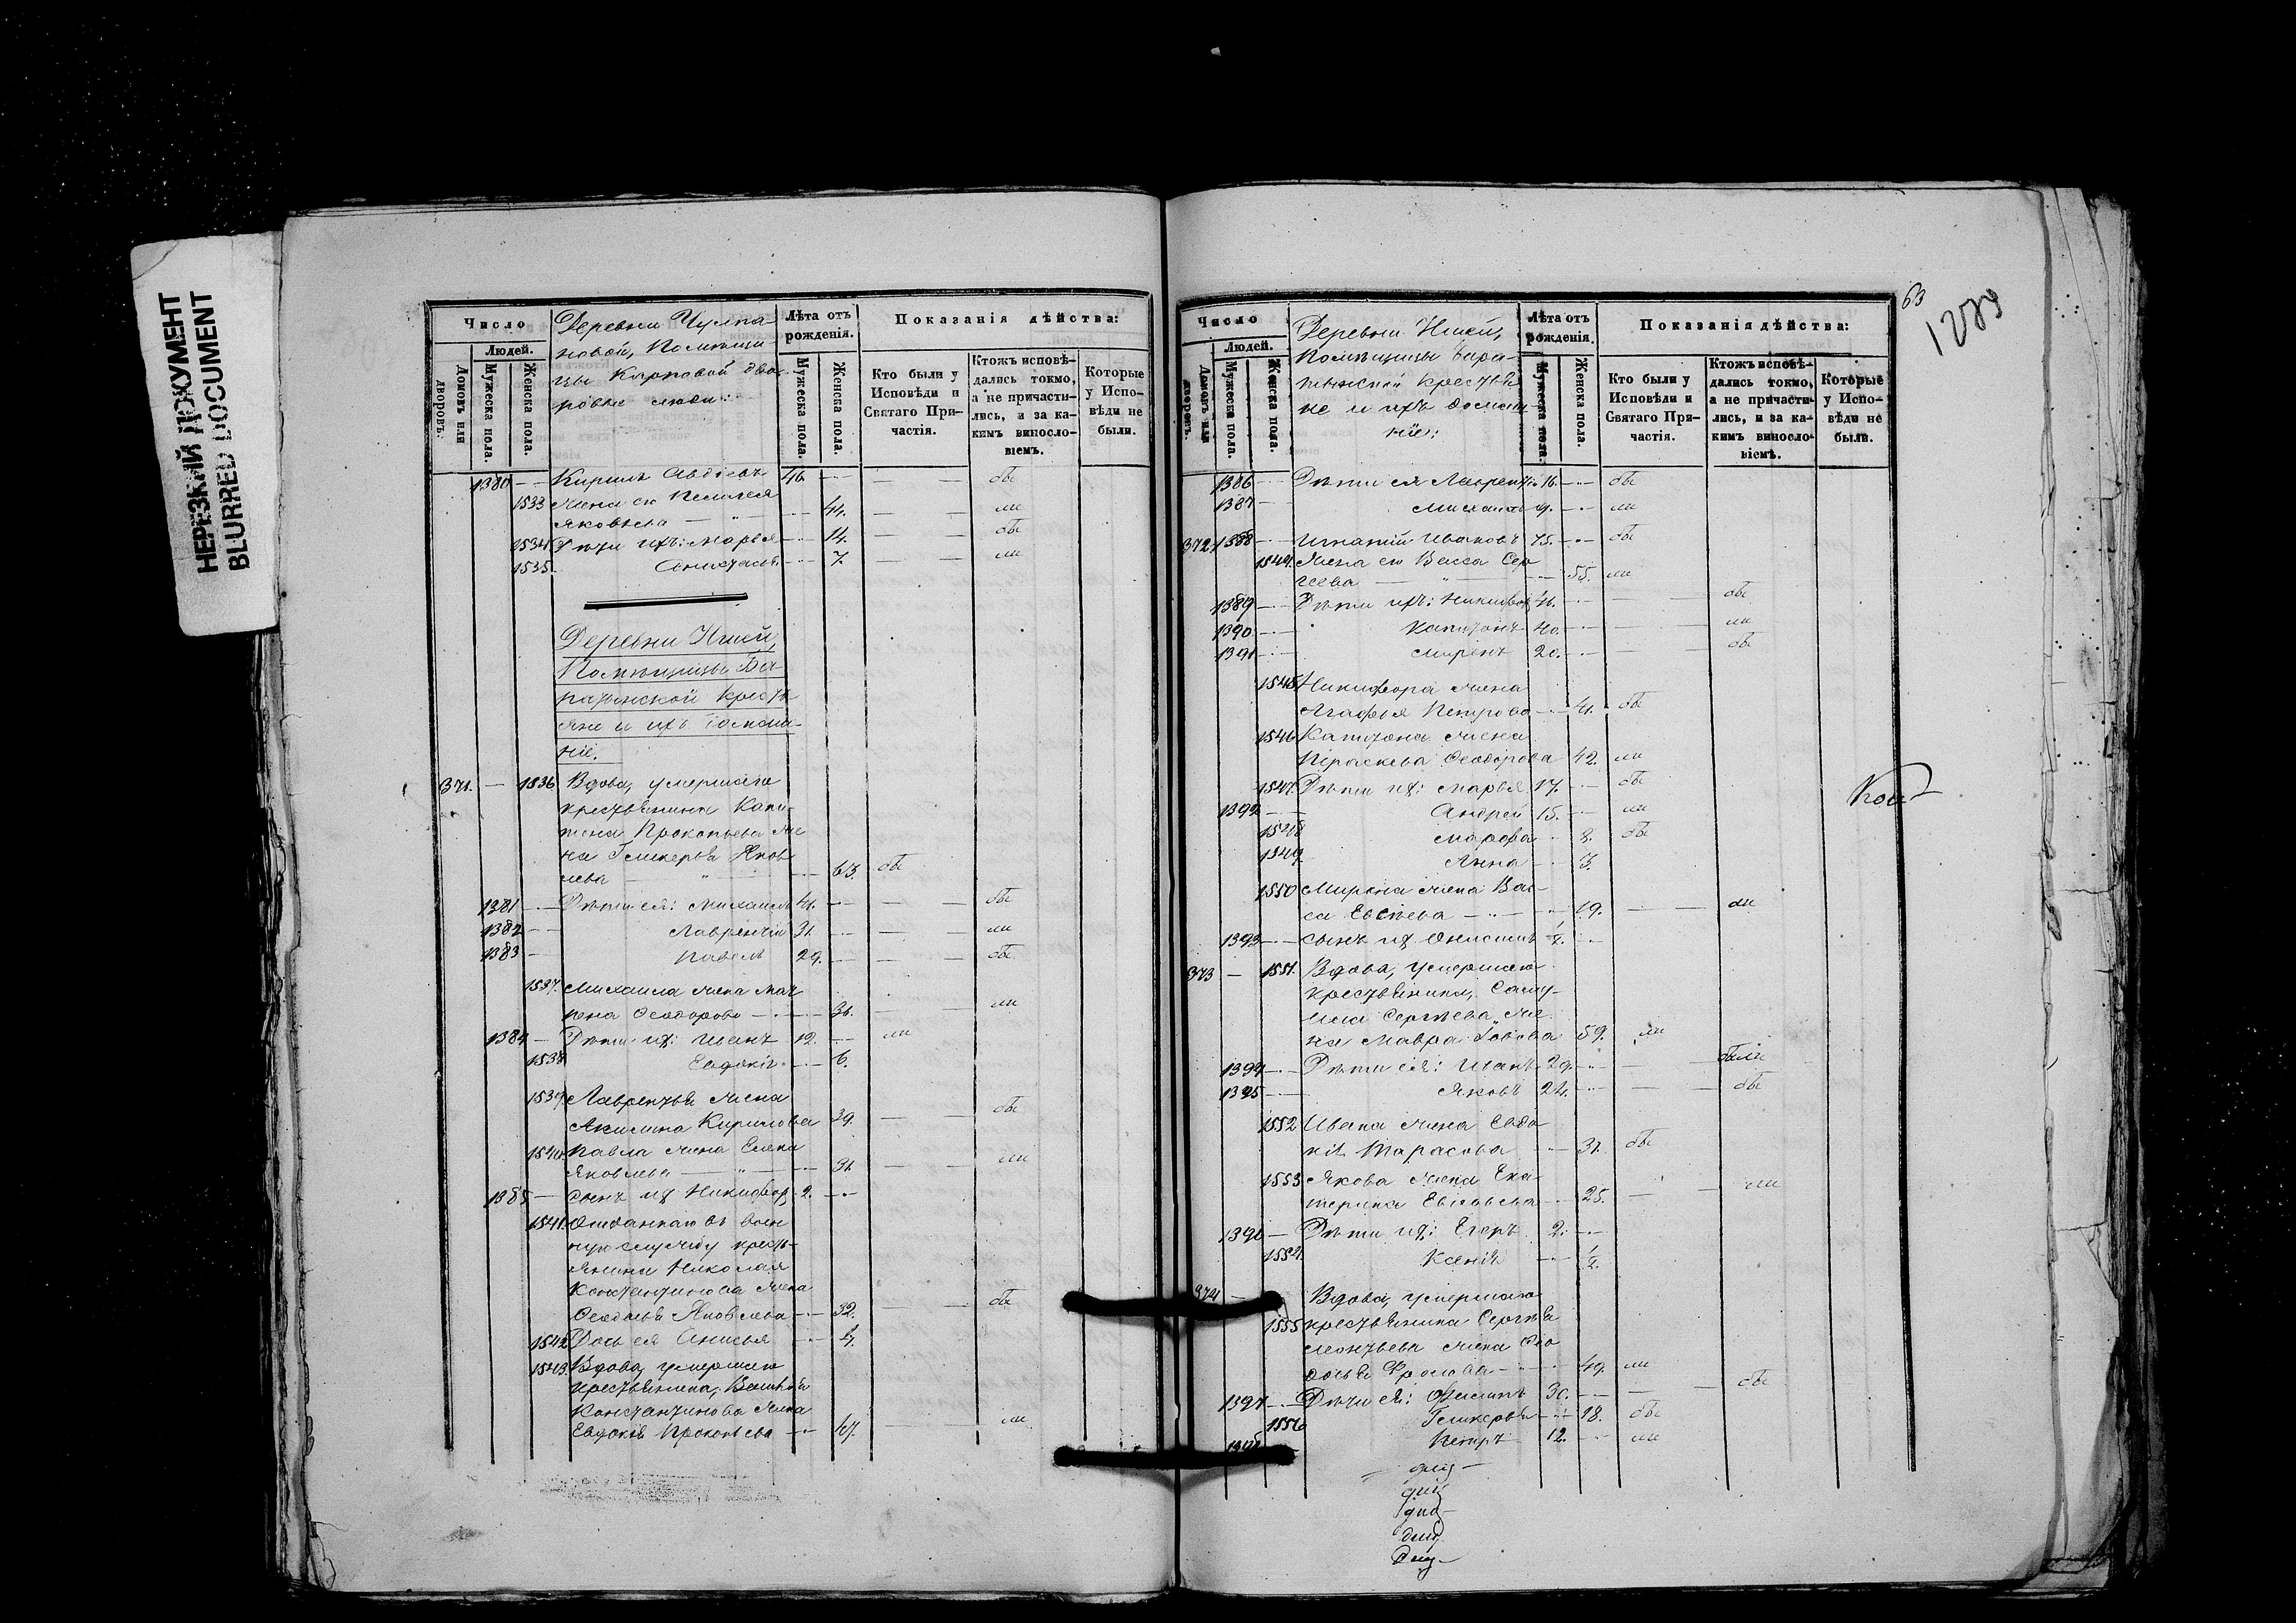 НЕРЕЗКИЙ ДОКУМЕНТ
BLURRED DOCUMENT
Число
Людей.
Домовъ или дворовъ.
Мужеска пола.
Женска пола.
Деревни Чулпа-
новой, Помѣщи
цы Карповой дво-
ровые люди:
Лѣта отъ рожденія.
Мужеска пола.
Женска пола.
Показанія дѣйства:
Кто были у Исповѣди и Святаго Причастія.
Ктожъ исповѣдались токмо, а не причастились, и за какимъ винословіемъ.
Которые у Исповѣди не были.
1380 Кирилъ Авдіевъ 46 бы
1533 Жена его Пелагея
Яковлева 44. ли
1534 Дѣти ихъ: Марья 14. бы
1535. Анистасія 7. ли
Деревни
Помѣщицы Ба
ратынской крестья
яне и ихъ домаш-
ніе.
371. 1536 Вдова, умершаго
крестьянина Капи-
тона Прокопьева же
на Гликерья Яков
лева 63. бы
1381 Дѣти ея: Михаилъ 41. бы
1382 Лаврентій 31. ли
1383 Павелъ 29. бы
1537. Михаила жена Мат
рена Ѳеодорова 36. ли
1384 Дѣти ихъ: Иванъ 12. ли
1538 Евдокія 6.
1539 Лаврентья жена
Акилина Кирилова 39. бы
1540 Павла жена Елена
Яковлева 31. ли
1385 Сынъ ихъ Никифоръ 2.
1541. Отданнаго въ воен
ную службу кресть-
янина Николая
Константинова жена
Ѳеодосья Яковлева 32. бы
1542 Дочь ея Анисья 4.
1543. Вдова, умершаго
крестьянина, Василія
Константинова жена
Евдокія Прокопьева 47. ли
63
1283
Число
Людей.
Домовъ или дворовъ.
Мужеска пола.
Женска пола.
Деревни
Помѣщицы Бара-
тынской крестья
не и ихъ домаш-
ніе:
Лѣта отъ рожденія.
Мужеска пола.
Женска пола.
Показанія дѣйства:
Кто были у Исповѣди и Святаго Причастія.
Ктожъ исповѣдались токмо, а не причастились, и за какимъ винословіемъ.
Которые у Исповѣди не были.
1386 Дѣти ея Лаврентій 16. бы
1387 Михаилъ 9. ли
372 1388 Игнатій Ивановъ 75. бы
1544. Жена его Васса Сер
геева 55. ли
1389 Дѣти ихъ: Никифоръ 46. бы
1390 Капитонъ 40. ли
1391 Миронъ 20. бы
1545 Никифора жена
Агафья Петрова 41. бы
1546 Капитона жена
Параскева Ѳеодорова 42. ли
1547. Дѣти ихъ: Марья 17. бы
1392 Андрей 15. ли
1548 Марѳа 8. бы
1549 Анна 3.
1550 Мирона жена Вас-
са Евсѣева 19. ли
1393 Сынъ ихъ Онисимъ ½.
373 1551. Вдова, умершаго
крестьянина, Саму-
ила Сергѣева же
на Мавра 59. ли
1394 Дѣти ея: Иванъ 29. были
1395 Яковъ 24. бы
1552 Ивана жена Евдо
кія Тарасова 31. бы
1553 Якова жена Ека
терина 25. ли
1396 Дѣти ихъ: Егоръ 2.
1554. Ксенія ½.
374 Вдова, умершаго
1555 крестьянина Сергѣя
Леонтьева жена Ѳео
досья Фролова 49. ли
1397 Дѣти ея: Филипъ 30. бы
1556 Гликерья 18. бы
1398 Петръ 12. ли